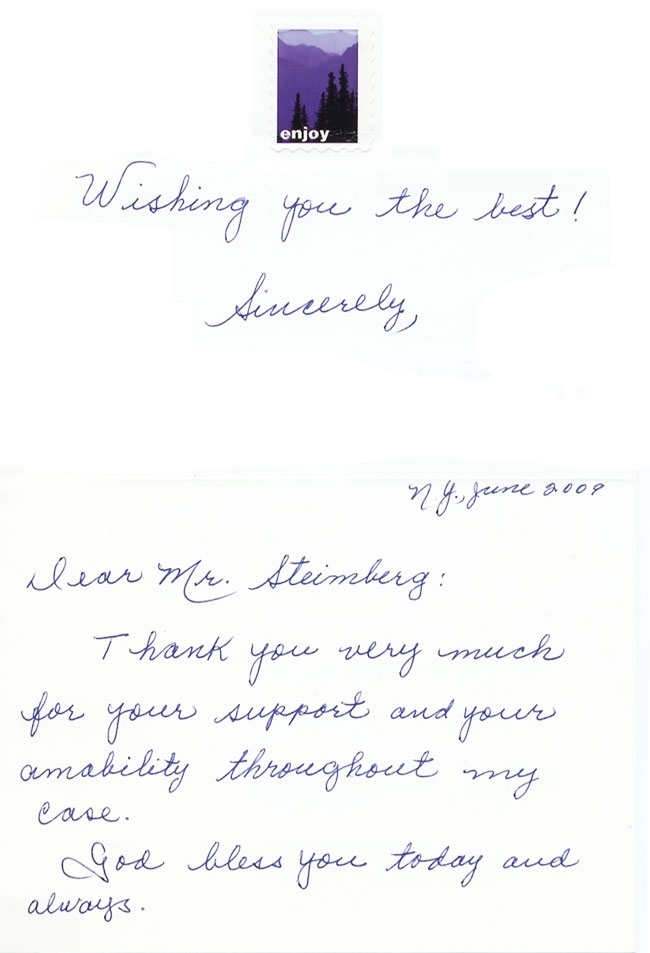 enjoy
Wishing you the best!
Sincerely,
N.Y., June 2009
Dear Mr. Steimberg:
Thank you very much
for your support and your
amability throughout my
case.
God bless you today and
always.